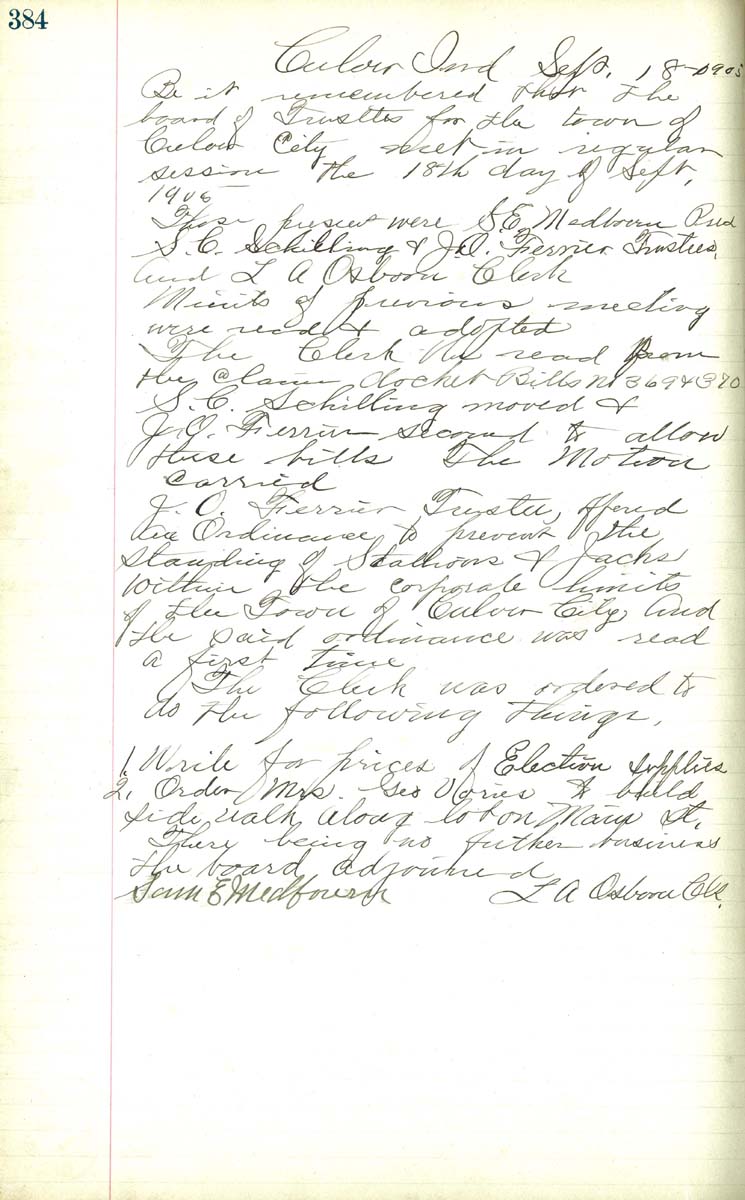 384
Culver Ind Sept. 18-1905
Be it remembered that the
board of Trusttes for the town of
Culver City met in regular
session the 18th day of Sept,
1905
Those present were S.E. Medbourn Pres
S.C. Schilling & J.O. Ferrier Trustees,
and L A Osborn Clerk
Minits of previous meeting
were read & adopted
The Clerk read from
the claim docket Bills No 369 & 370
S.C. Schilling moved &
J.O. Ferrier second to allow
these bills The Motion
carried
J.O. Ferrier Trustee, offered
an Ordinance to prevent the
Standing of Stallions & Jacks
Within the corporate limits
of the Town of Culver City, And
the said ordinance was read
a first time
The Clerk was ordered to
do the following things,
1. Write for prices of Election supplies
2. Order Mrs. Geo Vories to build
side walk along lot on Main St,
There being no futher business
the board adjourned
Sam E Medbourn L A Osborn Clk.